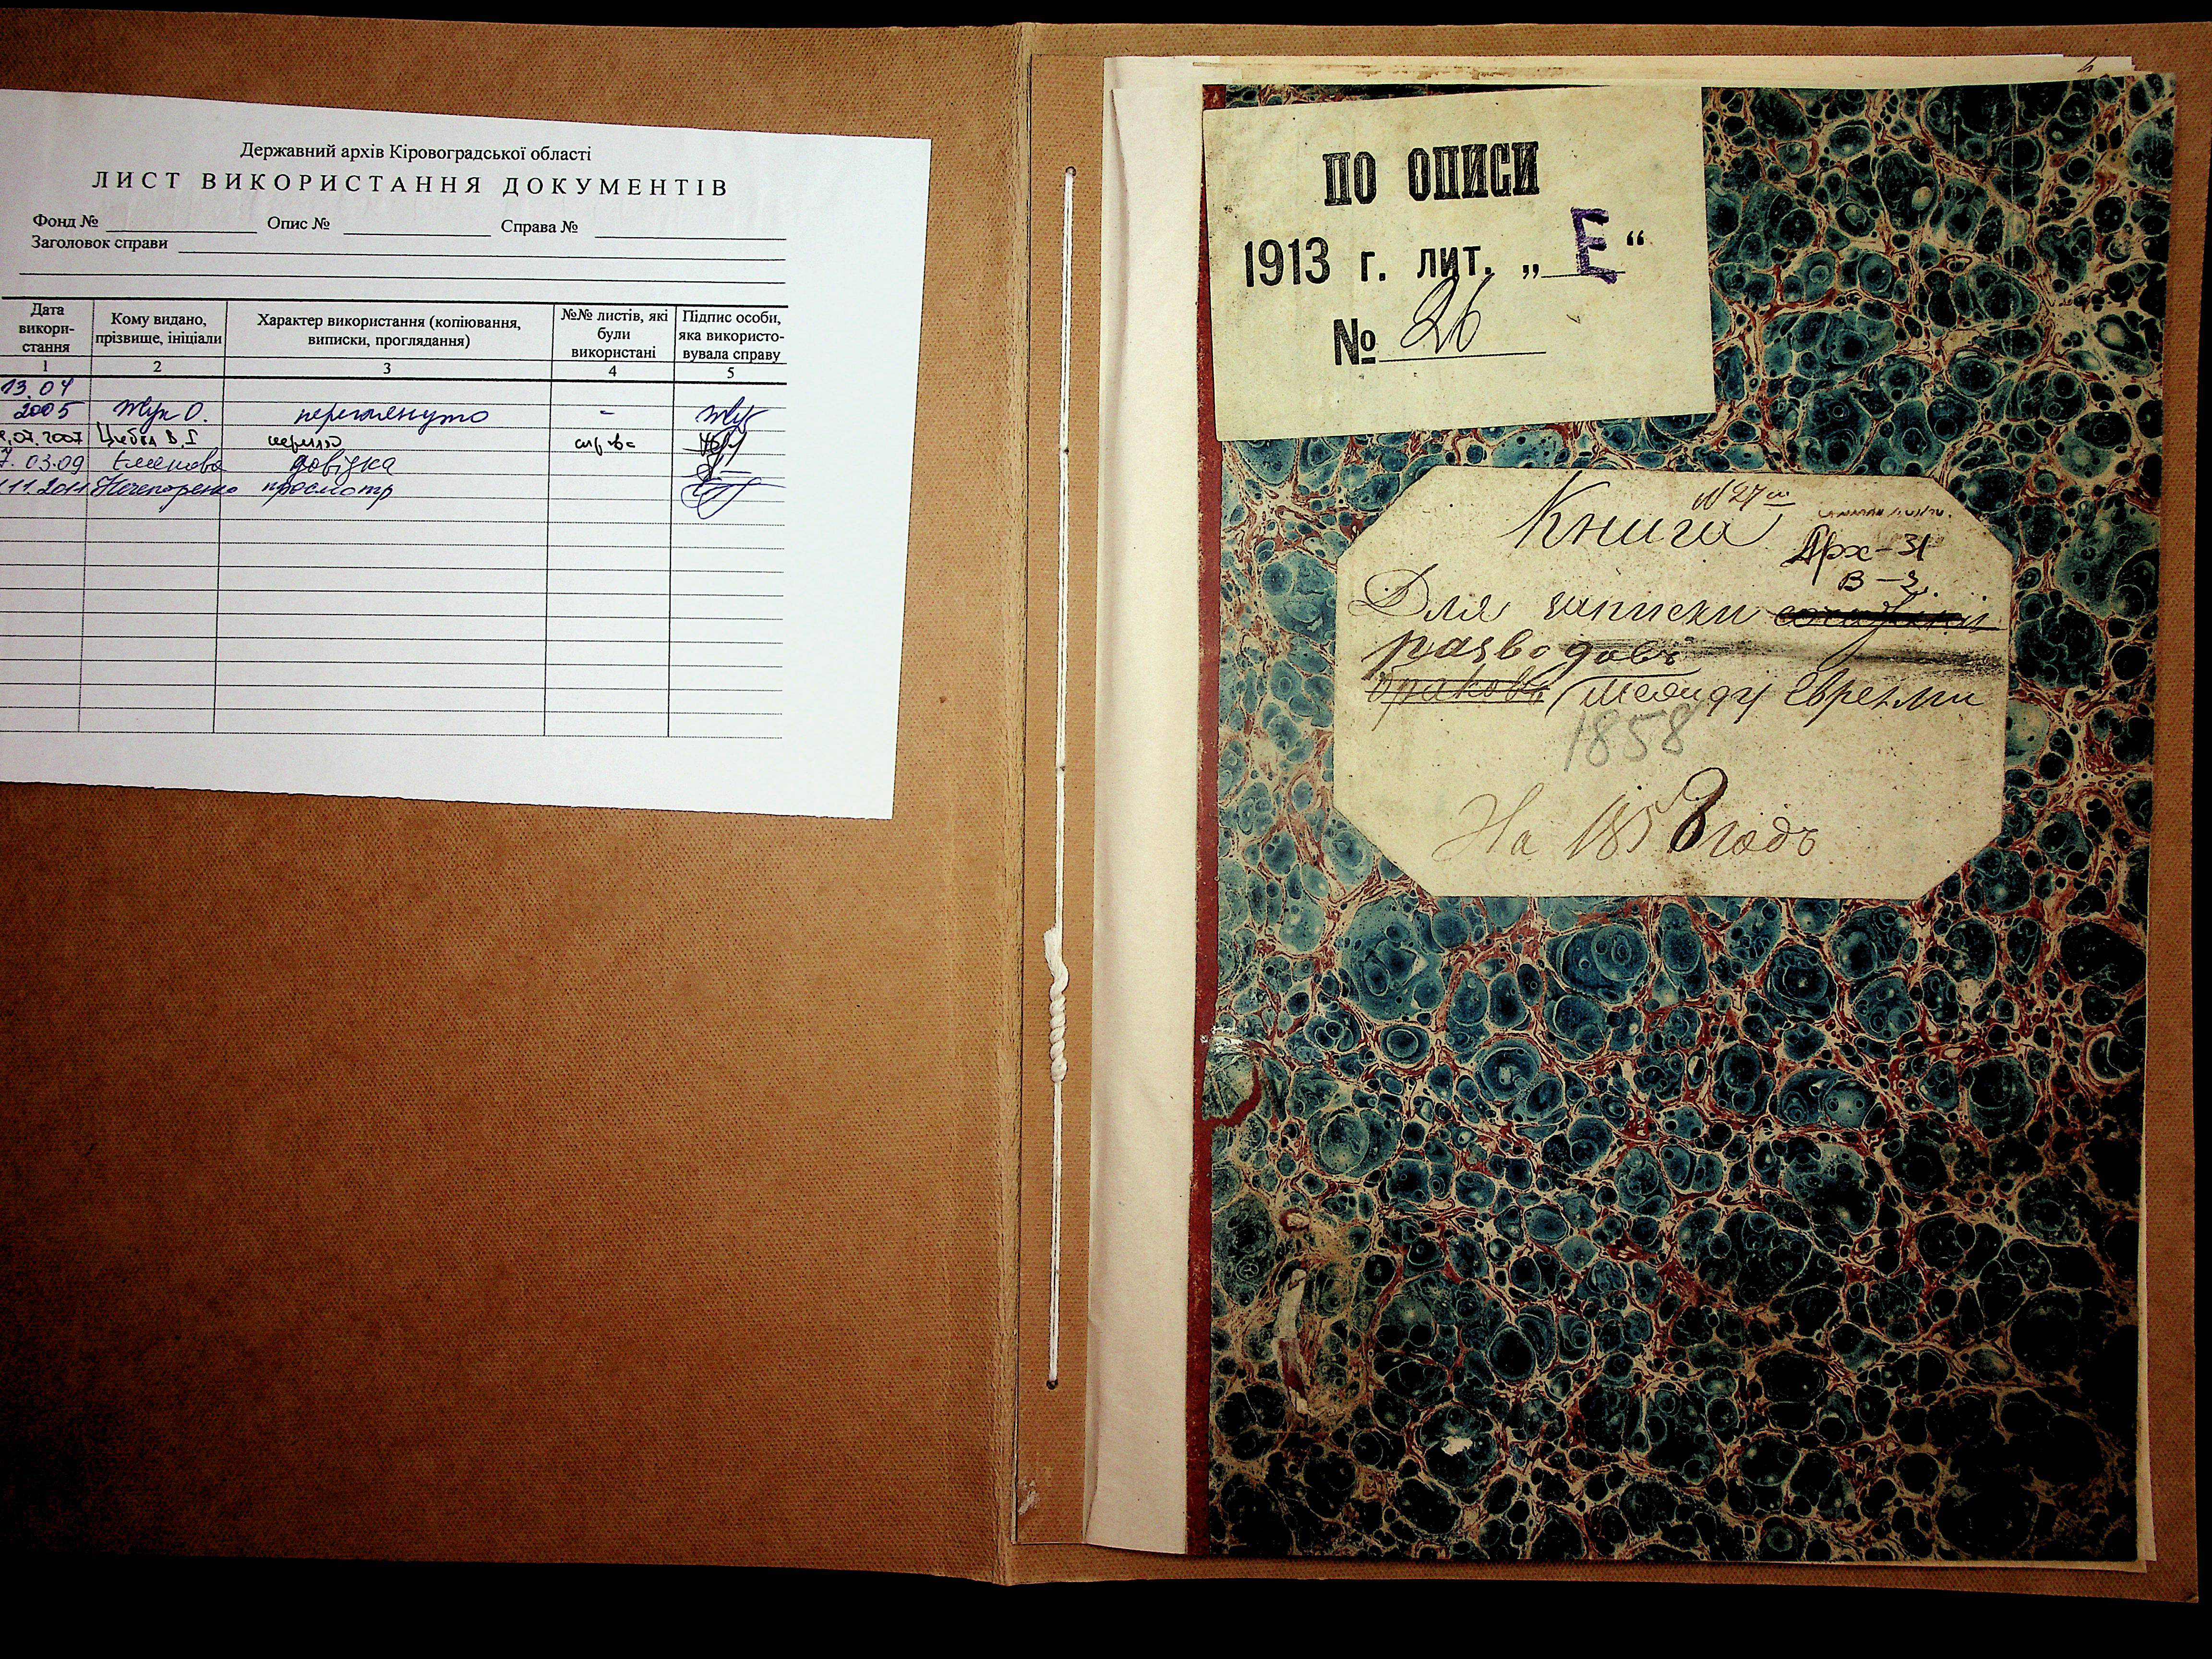 Державний архів Кіровоградської області
ЛИСТ ВИКОРИСТАННЯ ДОКУМЕНТІВ
Фонд № Опис № Справа №
Заголовок справи
Дата викори-стання
Кому видано, прізвище, ініціали
Характер використання (копіювання, виписки, проглядання)
№№ листів, які були використані
Підпис особи, яка використо-вувала справу
1 2 3 4 5
13.04
2005 Жук О. переглянуто - Жук
.07.2007 В.І.
7.03.09 довідка
11.2011 Нечепоренко просмотр
ПО ОПИСИ
1913 г. лит. „Е“
№ 26
№ 27
Книга
Арх-31
В-3.
Для записки
разводовъ
браковъ между Евреями
1858
На 1858 годъ